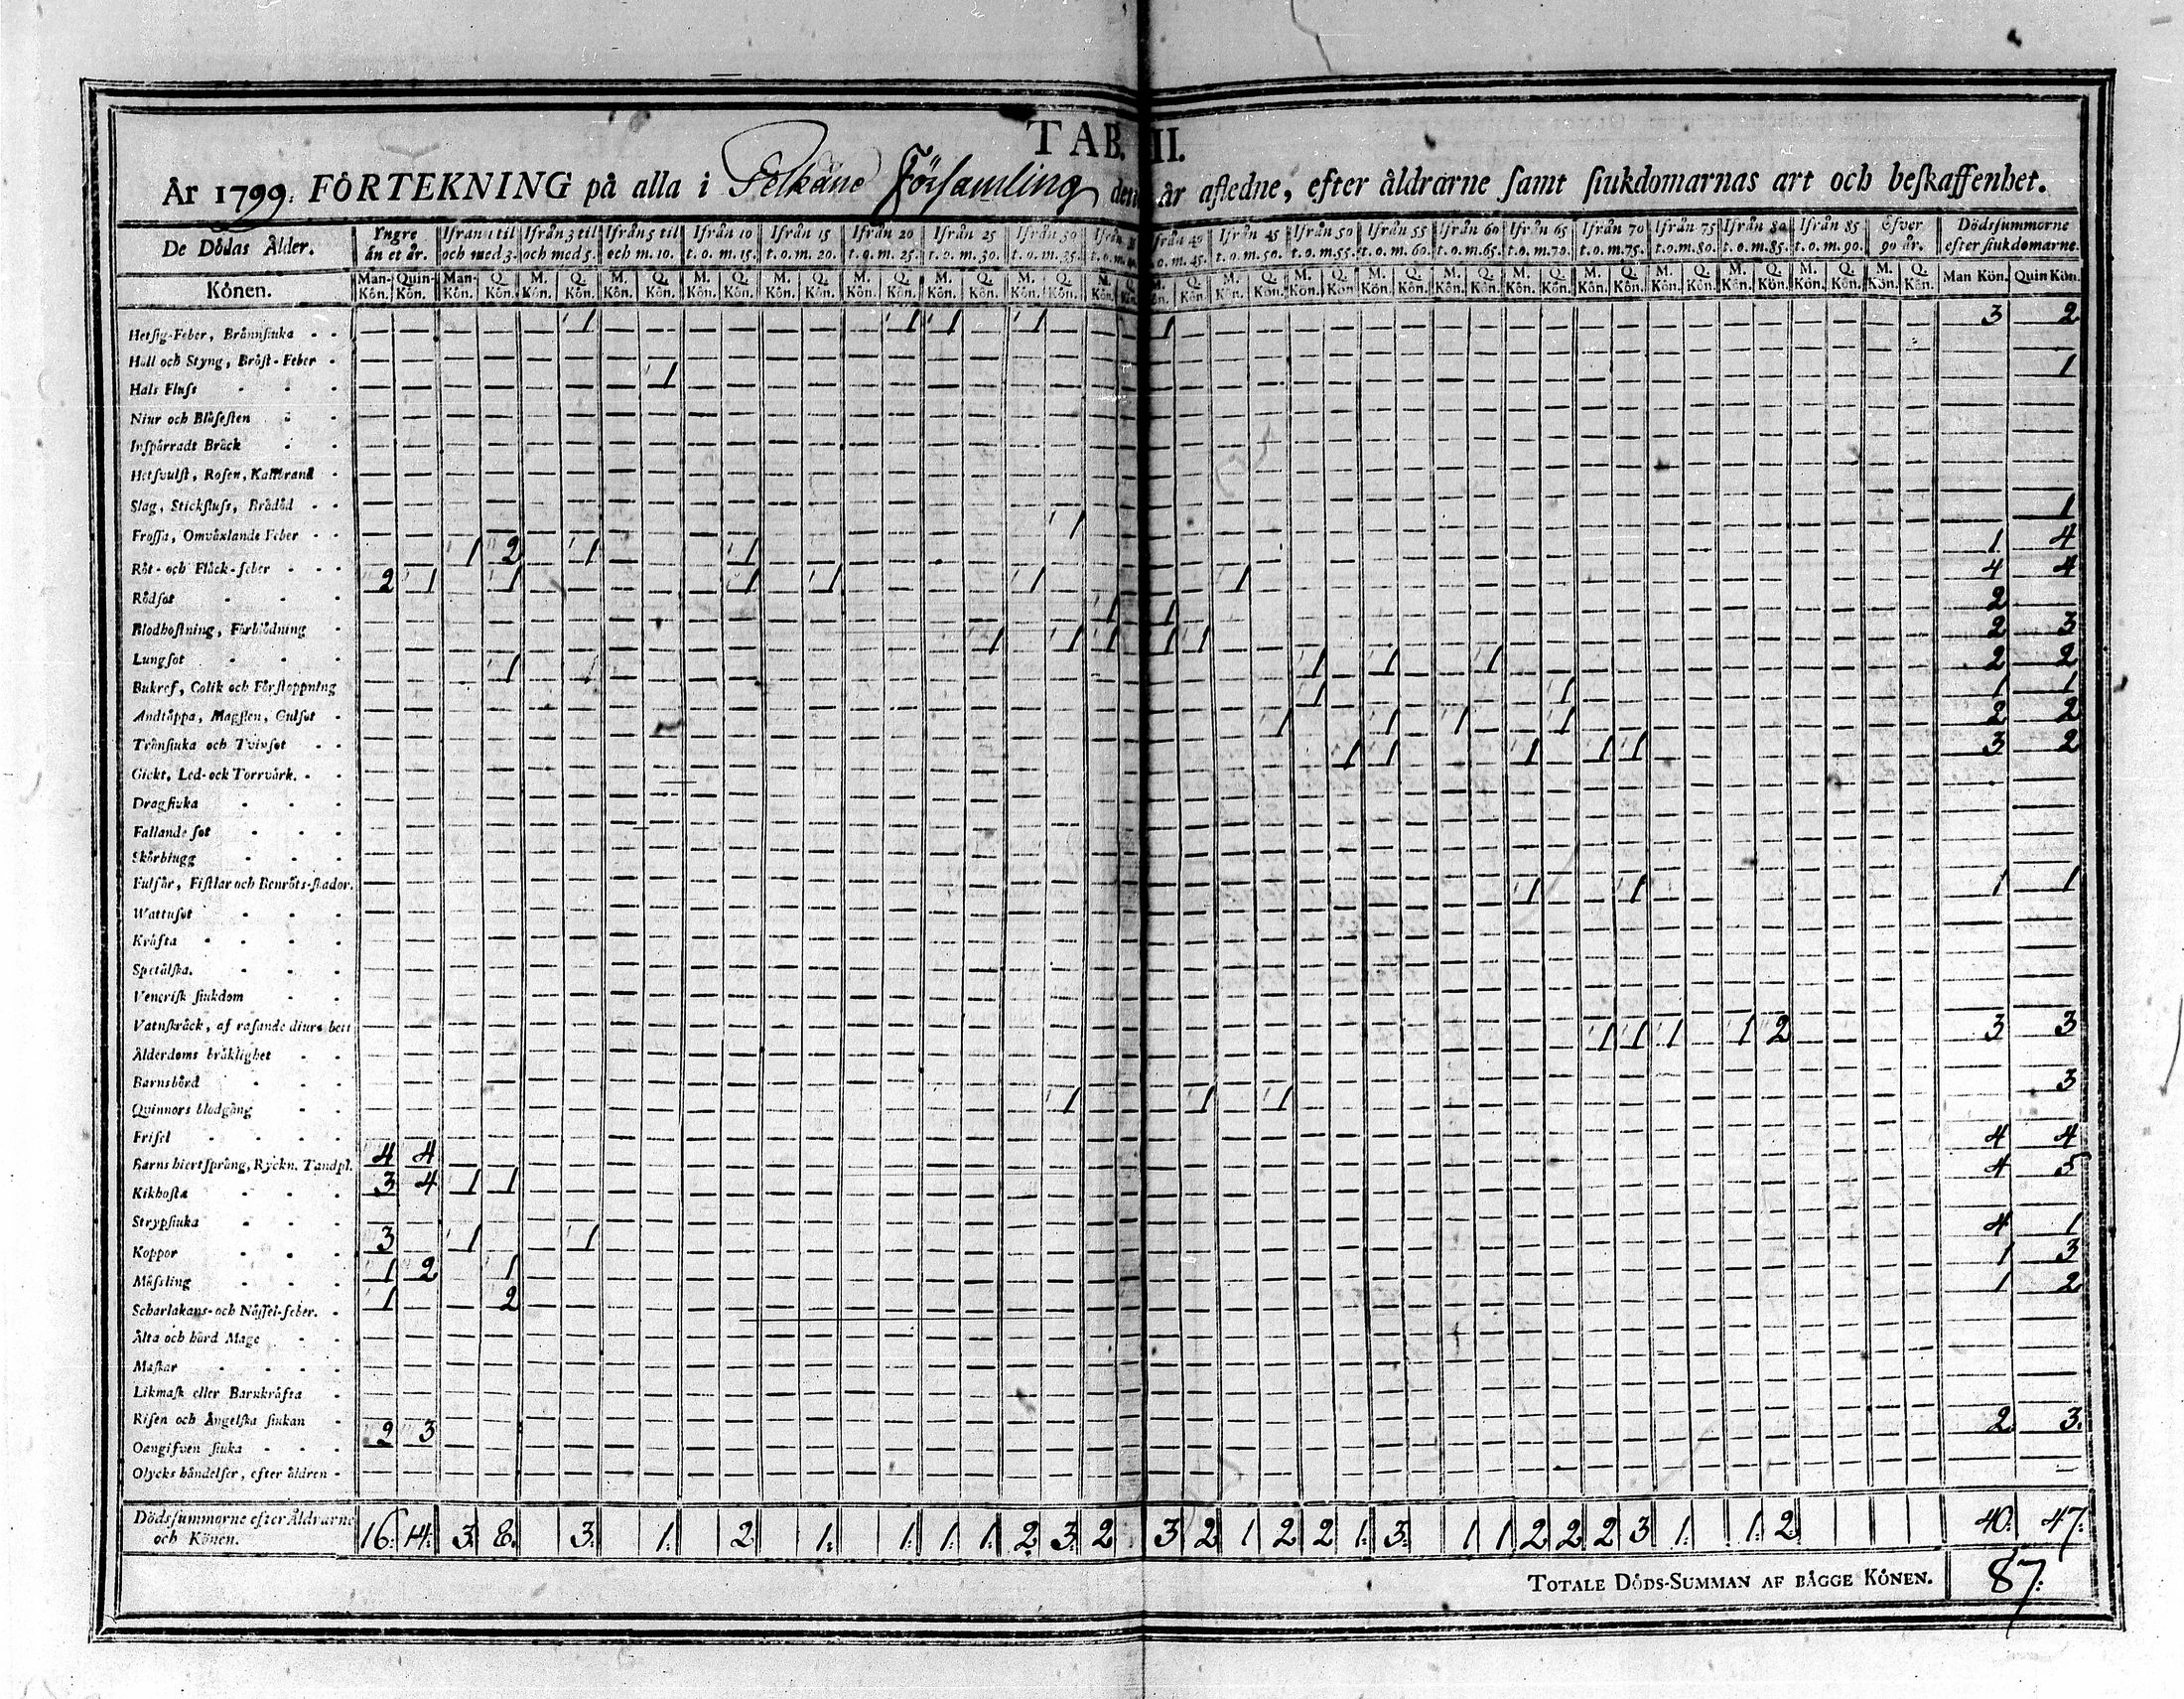 TAB. II.
År 1799. FÖRTEKNING på alla i Pelkäne Församling den år afledne, efter åldrarne samt siukdomarnas art och beskaffenhet.
De Dödas Ålder. Yngre än et år. Ifrån 1 til och med 3. Ifrån 3 til och med 5. Ifrån 5 til och m. 10. Ifrån 10 t. o. m. 15. Ifrån 15 t. o. m. 20. Ifrån 20 t. o. m. 25. Ifrån 25 t. o. m. 30. Ifrån 30 t. o. m. 35. Ifrån 40 t. o. m. 45. Ifrån 45 t. o. m. 50. Ifrån 50 t. o. m. 55. Ifrån 55 t. o. m. 60. Ifrån 60 t. o. m. 65. Ifrån 65 t. o. m. 70. Ifrån 70 t. o. m. 75. Ifrån 75 t. o. m. 80. Ifrån 80 t. o. m. 85. Ifrån 85 t. o. m. 90. Öfver 90 år. Dödssummorne efter siukdomarne.
Könen. Man-Kön. Quin-Kön. Man-Kön. Q. Kön. M. Kön. Q. Kön. M. Kön. Q. Kön. M. Kön. Q. Kön. M. Kön. Q. Kön. M. Kön. Q. Kön. M. Kön. Q. Kön. M. Kön. Q. Kön. M. Kön. Q. Kön. M. Kön. Q. Kön. M. Kön. Q. Kön. M. Kön. Q. Kön. M. Kön. Q. Kön. M. Kön. Q. Kön. M. Kön. Q. Kön. M. Kön. Q. Kön. M. Kön. Q. Kön. M. Kön. Q. Kön. M. Kön. Q. Kön. M. Kön. Q. Kön. Man Kön. Quin Kön.
Hetsig-Feber, Brännsiuka 1 1 1 1 1 3 2
Håll och Styng, Bröst-Feber
Hals Fluss 1 1
Niur och Blåsesten
Inspärradt Bråck
Hetsvulst, Rosen, Kallbrand
Slag, Stickfluss, Brådöd
Frossa, Omväxlande Feber 1 1
Röt- och Fläck-feber 1 2 1 1 1 4
Rödsot 2 1 1 1 1 1 1 4 4
Blodhostning, Förblödning 1 1 2
Lungsot 1 1 1 1 1 2 3
Bukref, Colik och Förstoppning 1 1 1 1 2 2
Andtäppa, Magsten, Gulsot 1 1 1 1
Trånsiuka och Tvinsot 1 1 1 1 2 2
Gickt, Led- och Torrvärk. 1 1 1 1 1 3 2
Dragsiuka
Fallande sot
Skörbiugg
Fulsår, Fistlar och Benröts-skador.
Wattusot 1 1 1 1
Kräfta
Spetälska.
Venerisk siukdom
Vatnskräck, af rasande diurs bett
Ålderdoms bräklighet 1 1 1 1 2 3 3
Barnsbörd
Qvinnors blodgång 1 1 1 3
Frisel
Barns hiertsprång, Ryckn. Tandpl. 4 4 4 4
Kikhosta 3 4 1 1 4 5
Strypsiuka
Koppor 3 1 1 4 1
Mässling 1 2 1 1 3
Scharlakans- och Nässel-feber. 1 2 1 2
Älta och hård Mage
Maskar
Likmask eller Barnkräfta
Risen och Ängelska siukan
Oangifven siuka 2 3 2 3.
Olycks händelser, efter åldren
Dödssummorne efter Åldrarne och Könen. 16. 14. 3. 8. 3. 1. 2 1. 1. 1. 1. 2. 3. 2 3 2 1 2 2 1. 3. 1 1 2 2 2 3 1. 1. 2. 40. 47.
TOTALE DÖDS-SUMMAN AF BÄGGE KÖNEN. 87.